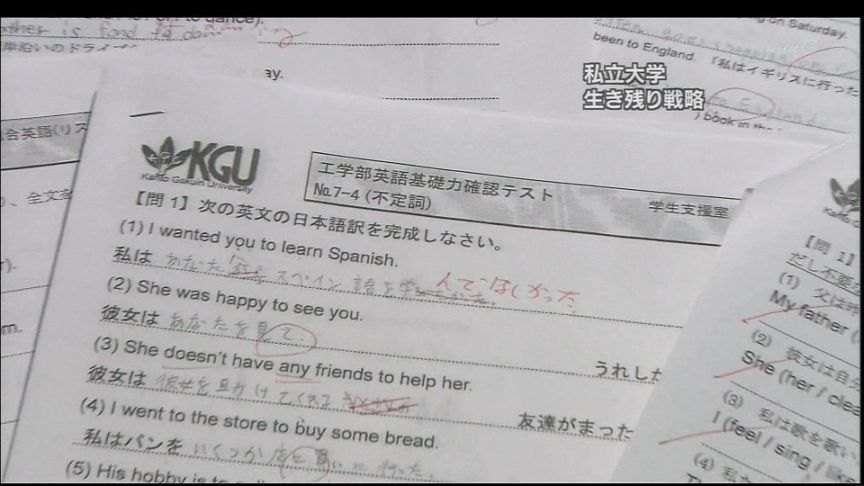 私立大学
生き残り戦略
ther is fond
岸沿いのドライ
ay.
on Saturday.
been to England. 「私はイギリスに行った
) book in the
合英語(リス
、全文を
KGU
Kanto Gakuin University
工学部英語基礎力確認テスト
No.7-4 (不定詞)
学生支援室
【問1】次の英文の日本語訳を完成しなさい。
(1) I wanted you to learn Spanish.
私は あなた スペイン語を学んでほしかった。
(2) She was happy to see you.
彼女は あなたを見て、 うれした
(3) She doesn't have any friends to help her.
彼女は 彼女を助けてくれる 友達がまった
(4) I went to the store to buy some bread.
私はパンを いくつか店に買いに行った。
(5) His hobby is to
r).
m.
【問1】
だし不要
(1) 父は昨
My father (
(2) 彼女は自分
She (her / clea
(3) 私は歌を歌い
I (feel / sing /
(4) 私